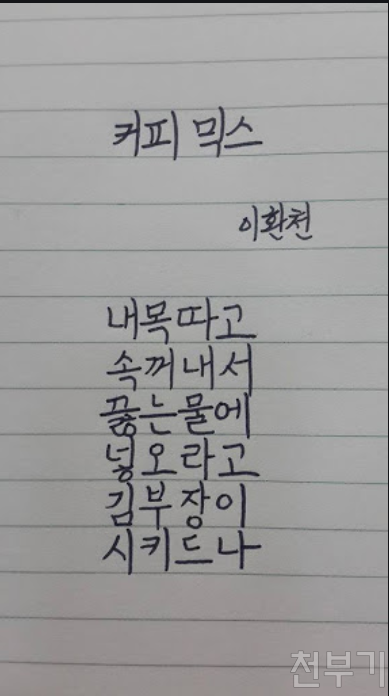 커피 믹스
이환천
내목따고
속꺼내서
끓는물에
넣오라고
김부장이
시키드나
천부기